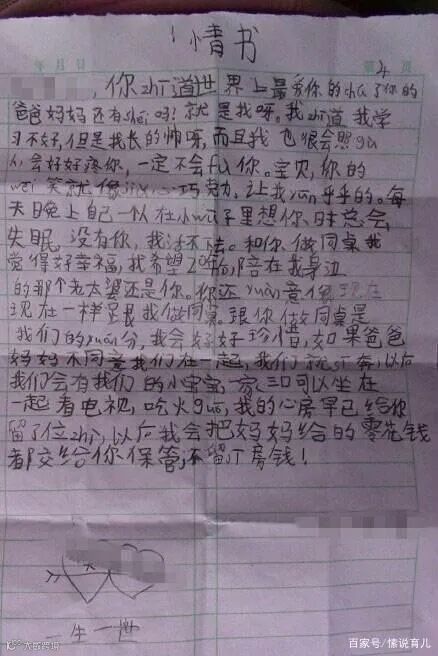 情书
年 月 日 第4页
，你zhī道世界上最爱你的chú了你的
爸爸妈妈还有shéi吗！就是我呀。我zhī道我学
习不好，但是我长的帅呀，而且我也很会照gù
人，会好好疼你，一定不会fù你。宝贝，你的
wēi笑就像 巧克力，让我yūn乎乎的。每
天晚上自己一个人在小wū子里想你，时总会
失眠，没有你，我活不 。和你做同桌我
觉得好幸福，我希望20年后，陪在我身边
的那个老太婆还是你。你还yuàn意像现在
现在一样 跟我做同桌。跟你做同桌是
我们的yuán分，我会好好珍惜，如果爸爸
妈妈不同意我们在一起，我们就 奔，以后
我们会有我们的小宝宝，一家三口可以坐在
一起看电视，吃火guō，我的心房早已给你
留了位zhì，以后我会把妈妈给的零花钱
都交给你保管，不留 房钱！
一生一世
大数跨境
百家号/愫说育儿